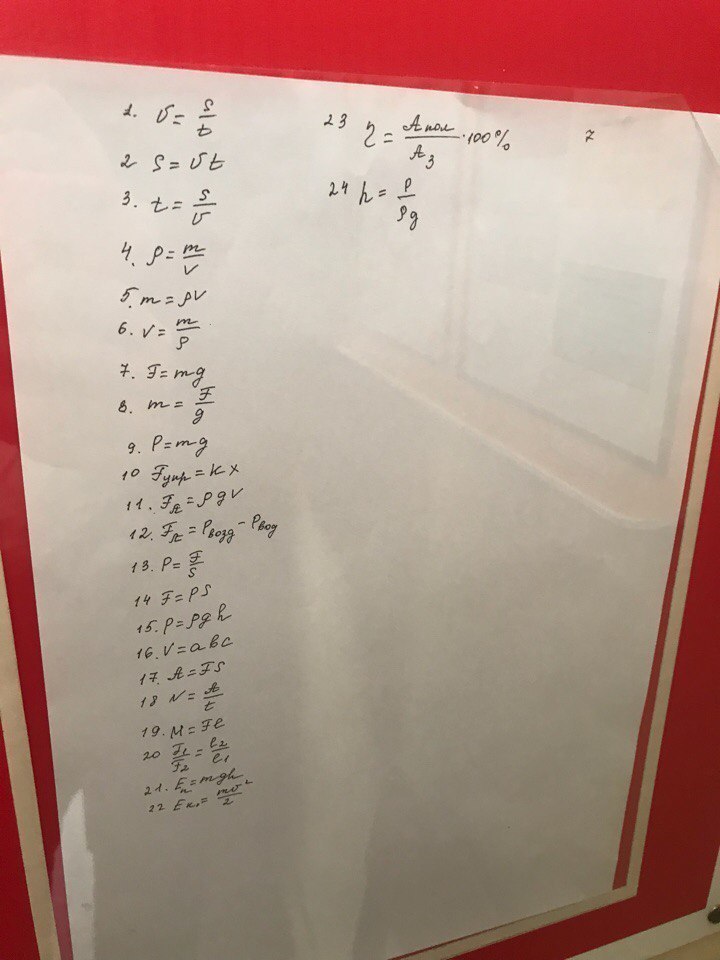 1. υ = s/t
2 S = υt
3. t = s/υ
4. ρ = m/V
5. m = ρV
6. V = m/ρ
7. F = mg
8. m = F/g
9. P = mg
10 Fупр = kx
11. FА = ρgV
12. FА = Pвозд - Pвод
13. P = F/S
14 F = PS
15. P = ρgh
16. V = abc
17. A = FS
18 N = A/t
19. M = Fl
20 F1/F2 = l2/l1
21. Eп = mgh
22 Eк = mυ²/2
23 η = Aпол/Aз · 100%
24 h = P/ρg
7